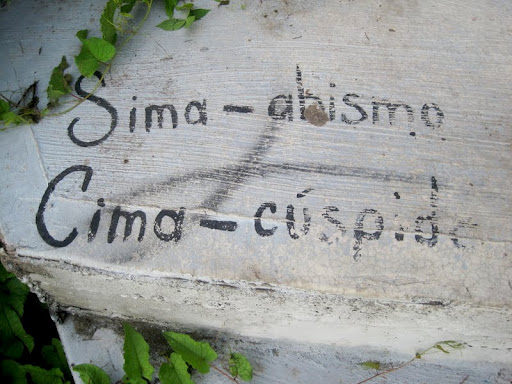 Sima - abismo
Cima - cúspide